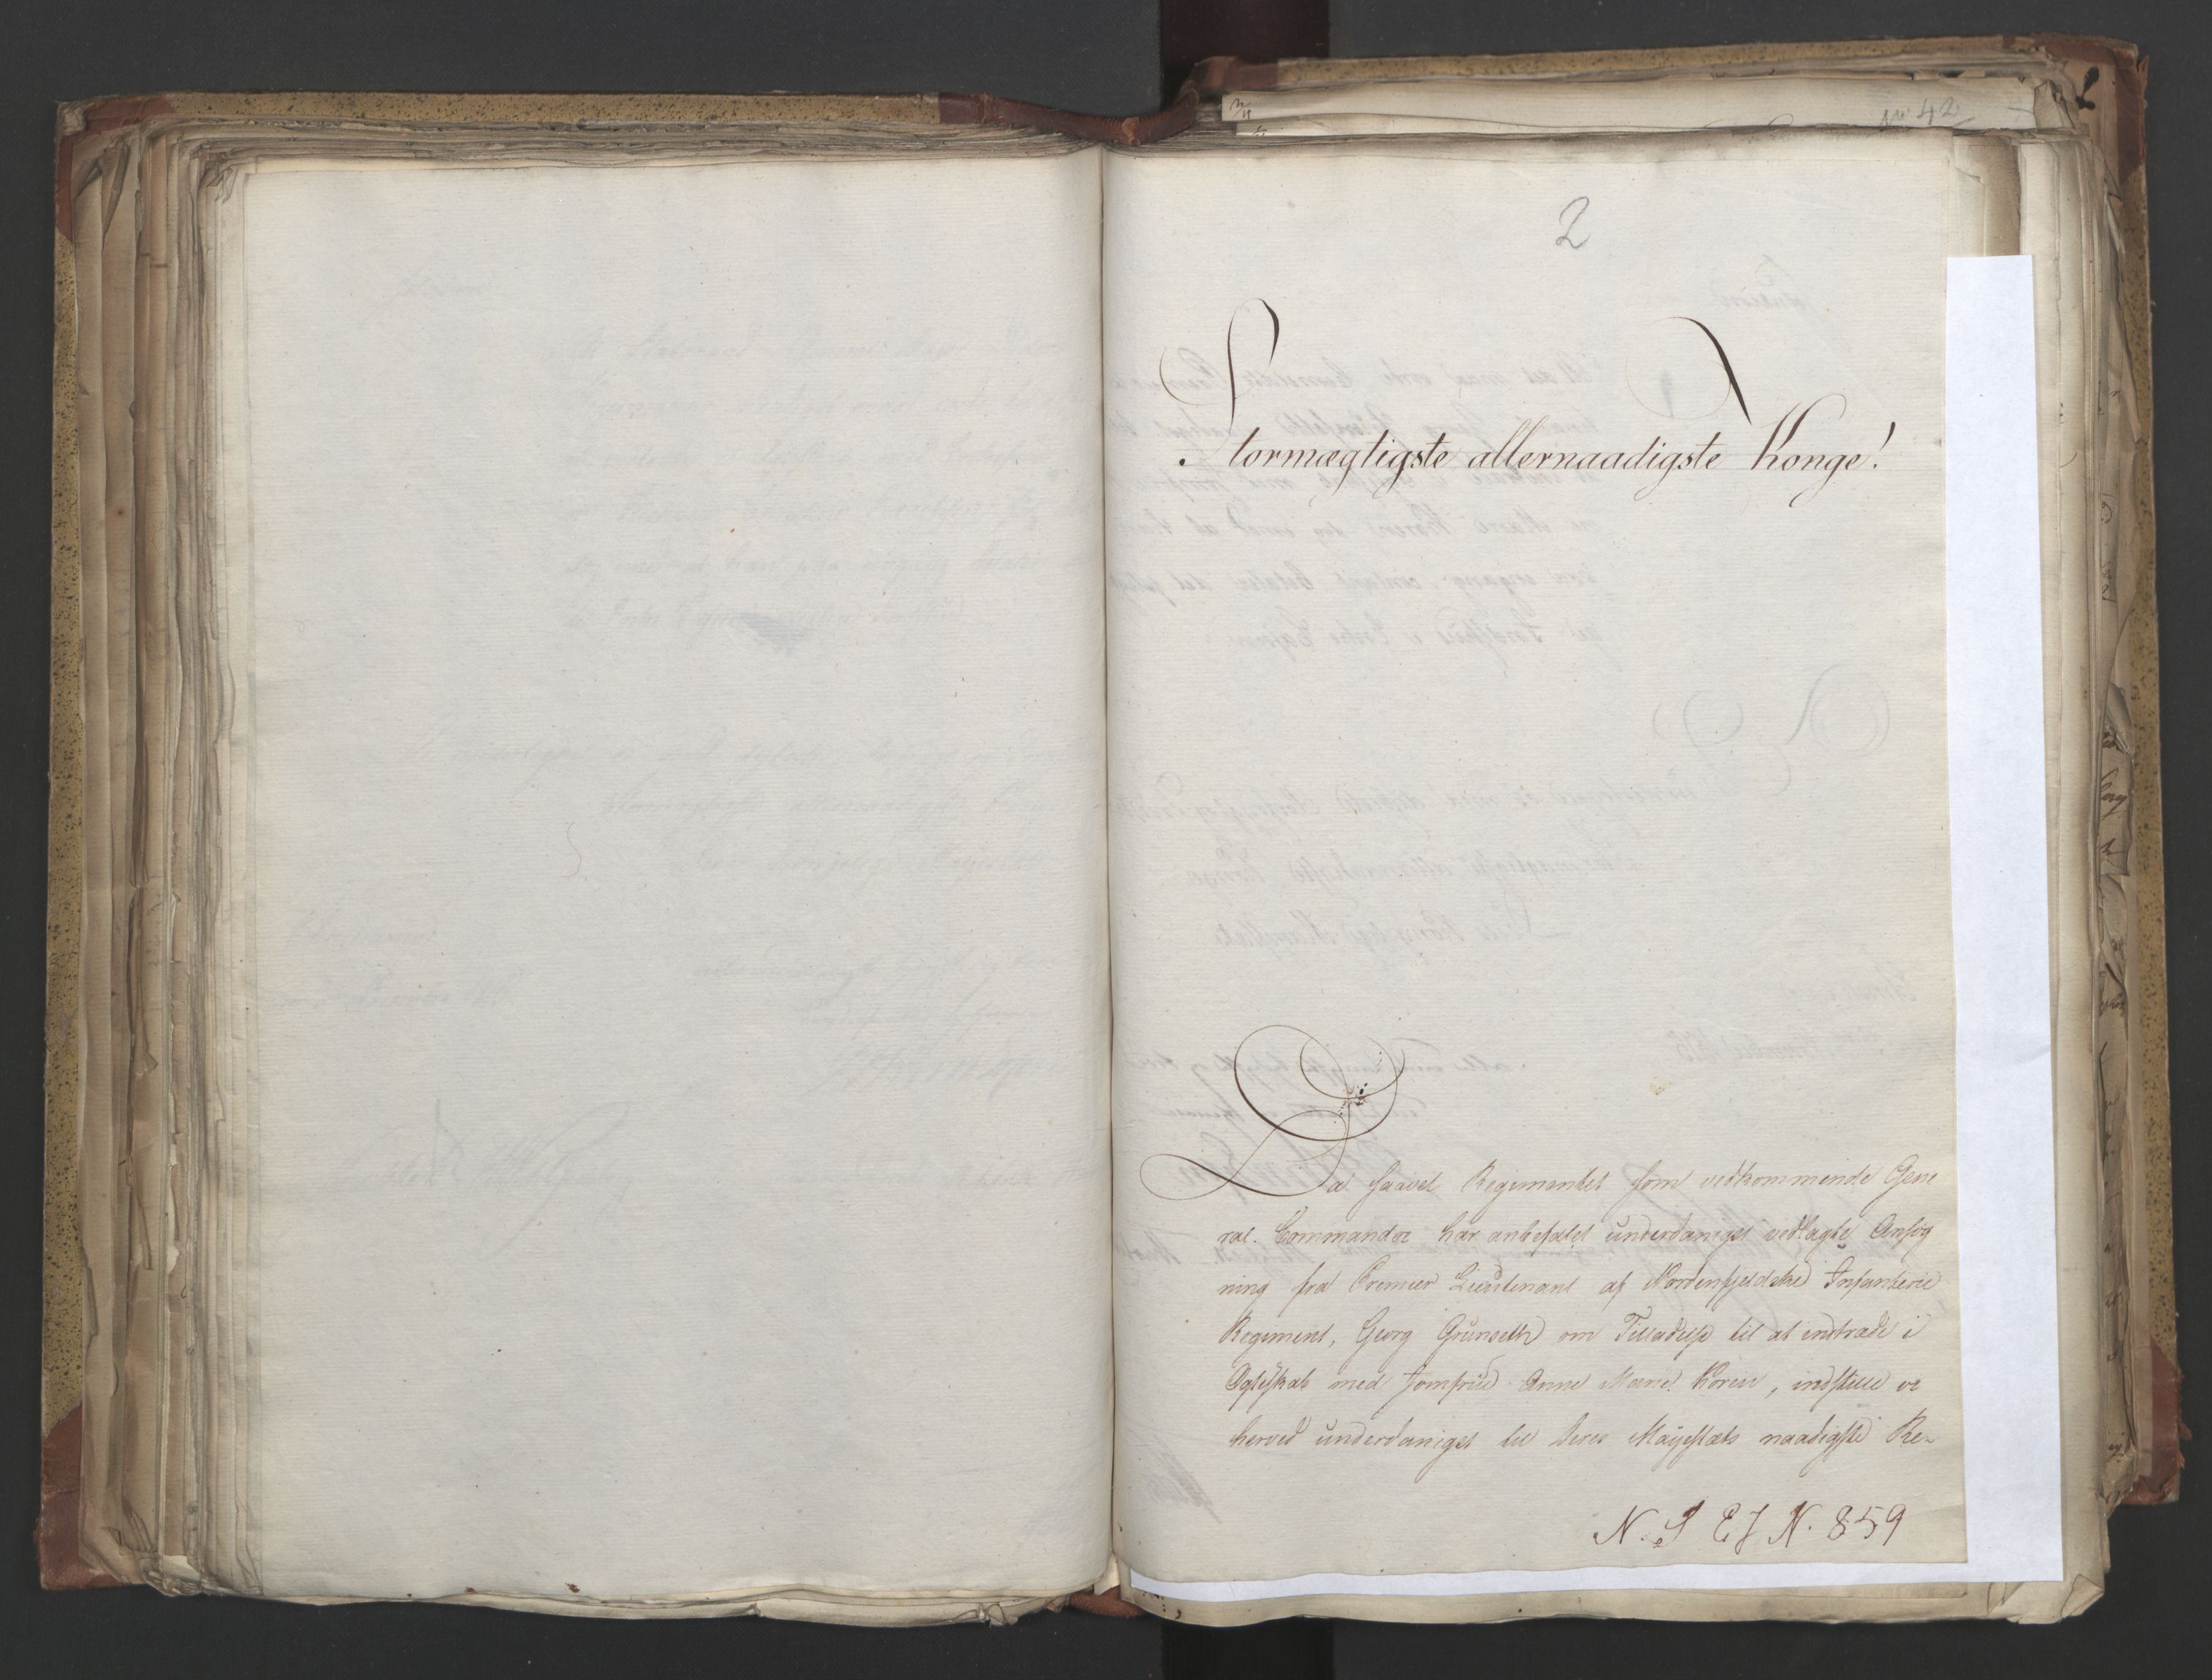 No 42
2
Stormægtigste allernaadigste Konge!
Da saavel Regimentet som vedkommende Gene
ral-Commando har anbefalet underdanigst vedlagte Ansøg
ning fra Premier Lieutenant af Nordenfjeldske Infanterie
Regiment, Georg Grünseth om Tilladelse til at indtræde i
Ægteskab med Jomfrue Anne Marie Koren, indstille vi
herved underdanigst til Deres Majestæts naadigste Re-
N. S E J N. 859